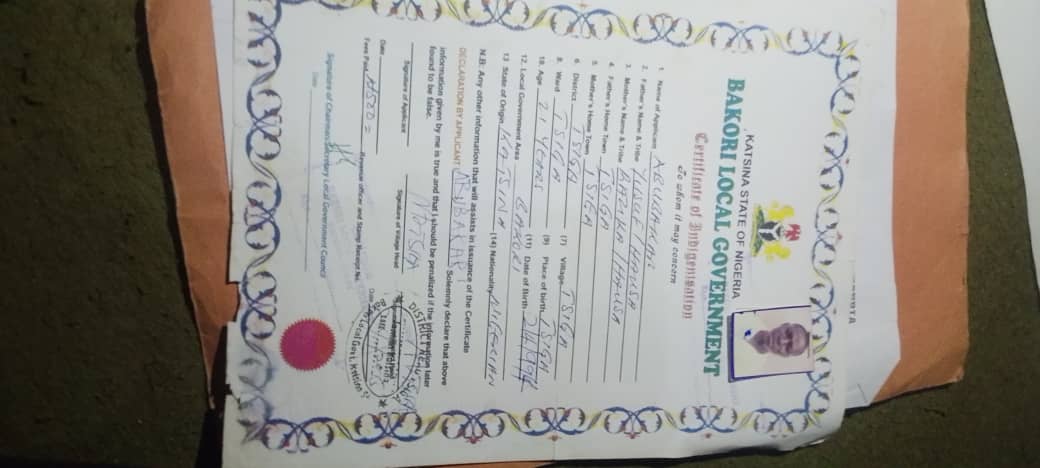 KATSINA STATE OF NIGERIA
BAKORI LOCAL GOVERNMENT
Certificate of Indigenisation
To whom it may concern
1. Name of Applicant
2. Father's Name & Tribe YUSUF / HAUSA
3. Mother's Name & Tribe / HAUSA
4. Father's Home Town TSIGA
5. Mother's Home Town TSIGA
6. District TSIGA (7) Village TSIGA
8. Ward TSIGA (9) Place of birth TSIGA
10. Age 21 YEARS (11) Date of Birth
12. Local Government Area BAKORI
13 State of Origin KATSINA (14) Nationality NIGERIAN
N.B: Any other information that will assists in issuance of the Certificate
DECLARATION BY APPLICANT Solemnly declare that above
information given by me is true and that I should be penalized if the information later
found to be false.
Signature of Applicant Signature of Village Head
Date Date
Fees Paid ₦500= Revenue officer and Stamp Receipt No.
Signature of Chairman/Secretary Local Government Council
Date